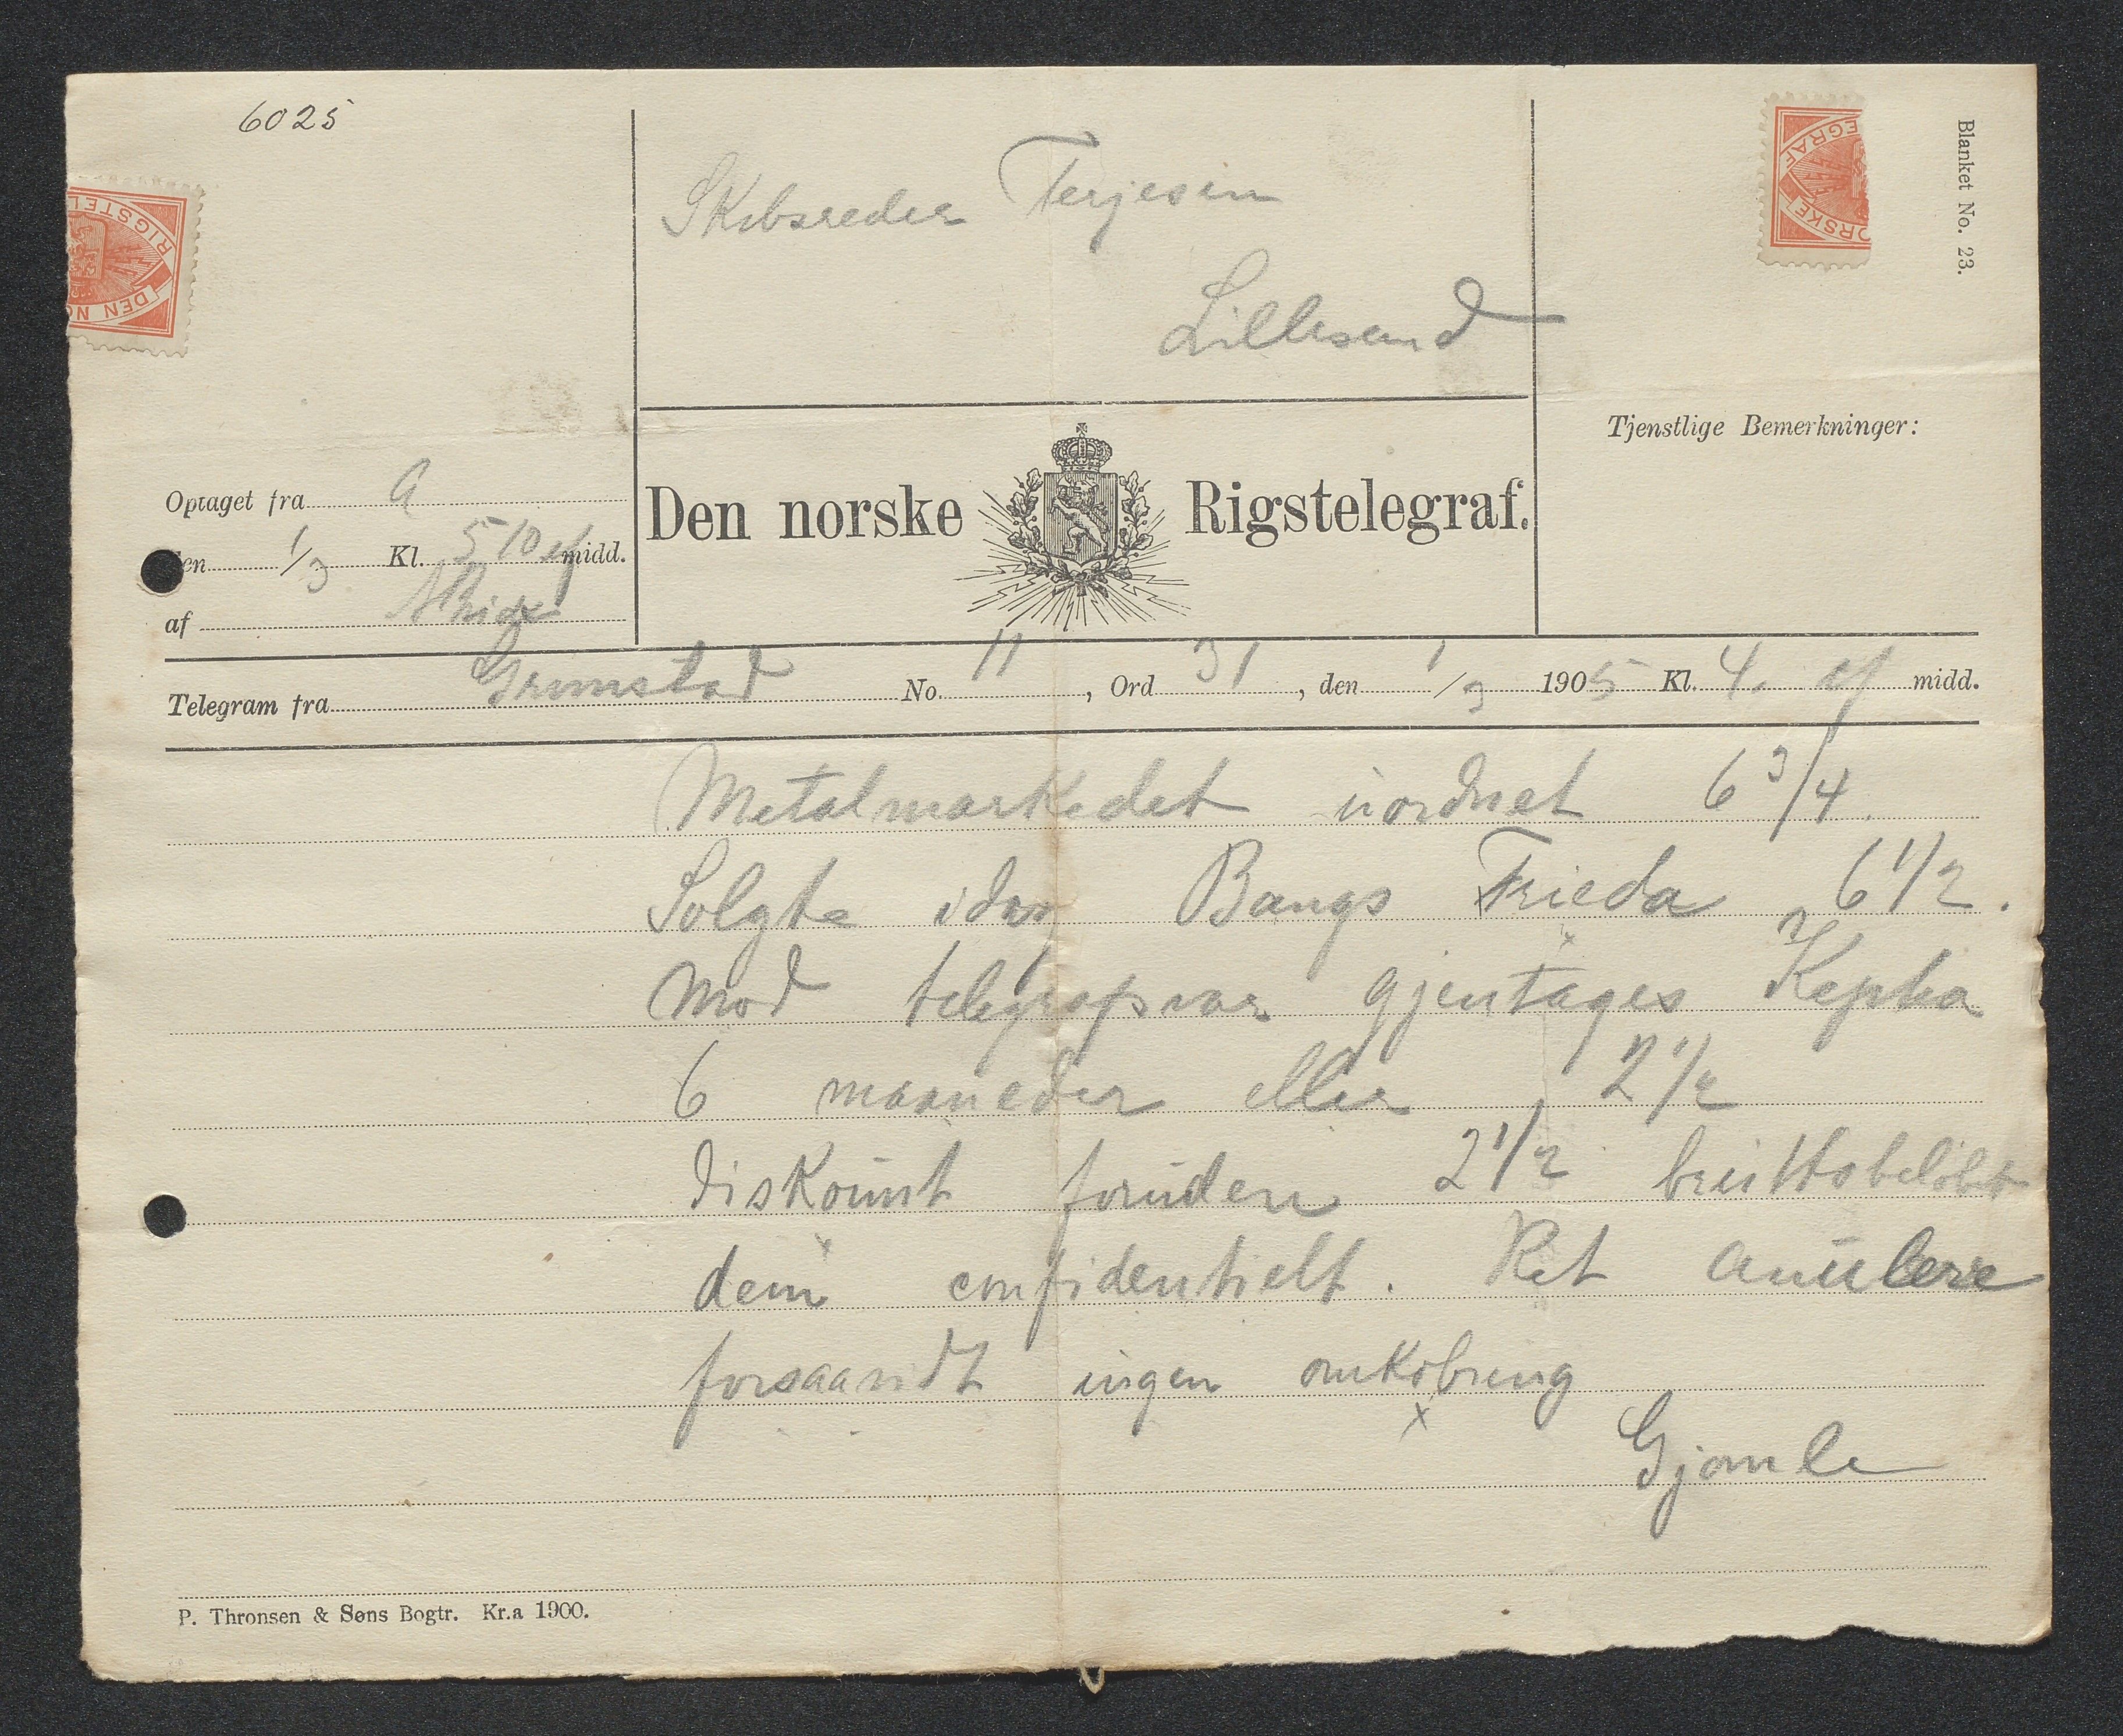 6025
Skibsreder Terjesen
Lillesand
Blanket No. 23.
RIGSTEL
DEN NO
EGRAF
ORSKE
Tjenstlige Bemerkninger:
Optaget fra A
den 1/3 Kl. 510 ef midd.
af
Den norske Rigstelegraf.
Telegram fra Grimstad No. 11, Ord 31, den 1/3 1905 Kl. 4. ef midd.
Metalmarkedet uordnet 6 3/4.
Solgte idag Bangs Frieda 6 1/2.
Mod telegrafsvar gjentages Kepha
6 maaneder eller 2 1/2
diskount foruden 2 1/2 bruttobeløbet
dem confidentielt. Ret anulere
forsaavidt ingen omkøbring
Gjomle
P. Thronsen & Søns Bogtr. Kr.a 1900.